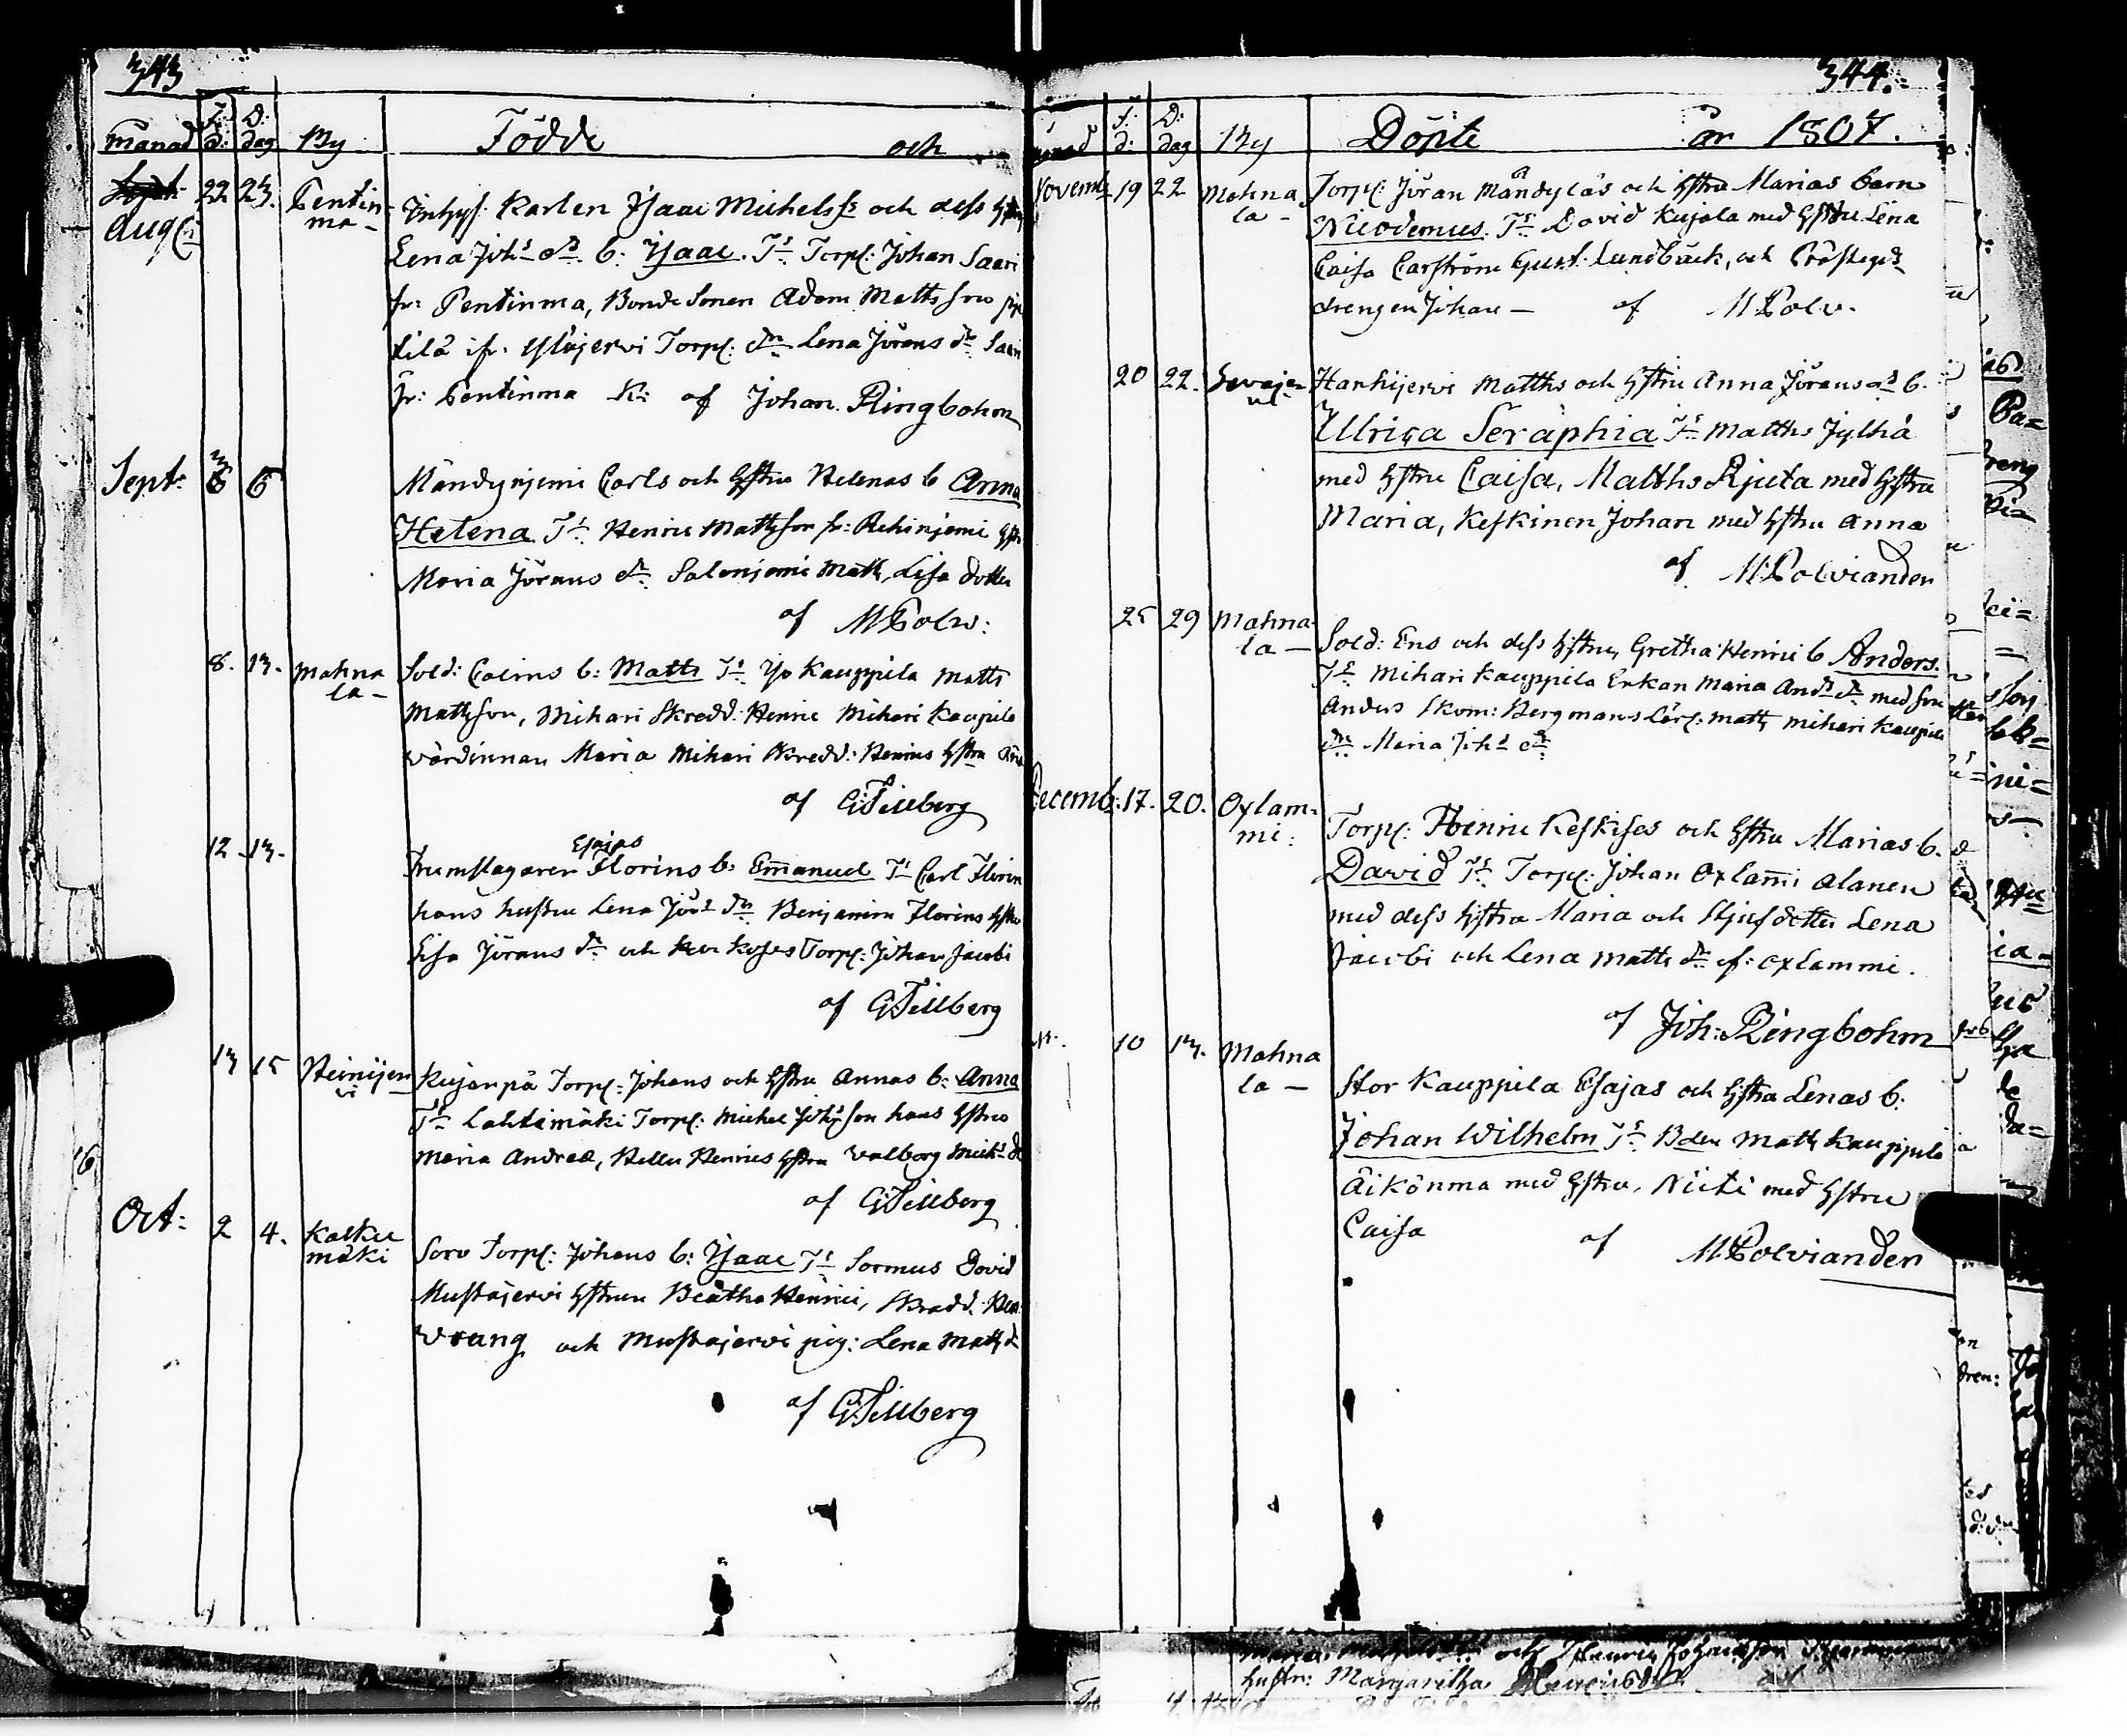 343
månad F: d: D: dag By Födde och
Sept. 22 23. Pentin-
Aug: ma-
Inhys Karlen Isaac Michelss: och dess hstru
Lena Johs dr. b: Isaac. Ts: Torp: Johan Saari
fr: Pentinma, Bonde Sonen Adam Mattsson
tilä ifr. Torp: dr Lena Jörans dr Saari
fr: Pentinma K: af Johan Ringbohm
Sept: 6 Mändyniemi Carls och hstru Helenas b Anna
Helena. Ts: Henric Mattsson fr: hstr
Maria Jörans dr. Salonjemi Matts, Lisa dotter
af M Polv:
8. 13. Mahna
la-
Sold: b: Matts Ts: Yo Kauppila Matts
Mattsson, Mihari Skredd: Henric Mihari Kaupila
värdinnan Maria Mihari Skredd: Henrics hstru
af G: Tillberg
12 13. Trumslagaren Esajas Florins b: Emanuel Ts: Carl Florin
hans hustru Lena Jörs dr. Benjamin Florins hstru
Lisa Jörans dr och Torp: Johan Jacobi
af G Tillberg
13 15 Heinijer-
vi
Kujanpä Torp: Johans och hstru Annas b: Anna
Ts: Lahtimäki Torp: Michel Johsson hans hstru
Maria Andreæ, Hellu Henrics hstru Valborg Micks d
af G Tillberg
Oct: 2 4. Kalku
mäki
Soro Torp: Johans b: Isaac Ts: Sormus David
Mustajervi hstrun Beatha Henrici, Skredd.
Vrang och Mustajervi pig: Lena Matts d
af G: Tillberg
344.
månad F: d: D: dag By Döpte år 1807.
Novemb 19 22 Mahna
la-
Torp: Jöran Mändyläs och hstru Marias barn
Nicodemus. Ts: David Kujala med hstru Lena
Caisa Carström Gust. Lundbäck, och Prästegds
drengen Johan — af M Polv.
20 22. Savajer-
vi
Hanhijervi Matths och hstru Anna Jörans dr b.
Ulrica Seraphia Ts: Matths Jylhä
med hstru Caisa, Matths Rjuta med hstru
Maria, Keskinen Johan med hstru Anna
af M: Polvianden
25 29 Mahna-
la —
Sold: Ens och dess hstru, Gretha Henrici b Anders.
Ts: Mihari Kauppila Enkan Maria Ands dr med son
Anders Skom: Bergmans Lärg: Matts Mihari Kaupila
dr Maria Johs dr
Decemb: 17. 20. Oxlam-
mi:
Torp: Henric Keskises och hstru Marias b.
David Ts: Torp: Johan Oxlammi Alanen
med dess hstru Maria och Stjufdotter Lena
Jacobi och Lena Matts dr ef: Oxlammi.
af Joh: Ringbohm
10 13. Mahna
la —
Stor Kauppila Esajas och hstru Lenas b:
Johan Wilhelm Ts: Bden Matts Kauppila
Äikönma med hstru, Niiti med hstru
Caisa af M Polvianden
hustru: Margaretha